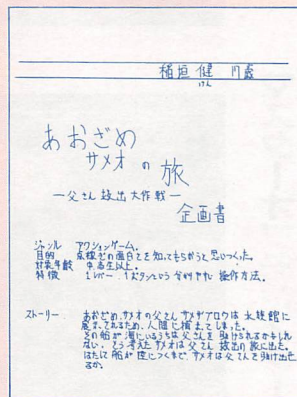 稲垣 健 17歳
けん
あおざめ
サメオの旅
―父さん救出大作戦―
企画書
ジャンル アクションゲーム。
目的 点稼ぎの面白さを知ってもらおうと思いつた。
対象年齢 中高生以上。
特徴 1レバー、1ボタンという分かりやすい操作方法。
ストーリー
あおざめ、サメオの父さん サメザブロウは 水族館に
展示されるため、人間に捕まってしまった。
その船が海にいるうちは父さんを助けられるかもしれ
ない。そう考えたサメオは父さん救出の旅に出た。
はたして船が陸につくまでサメオは父さんを助け出せ
るか。